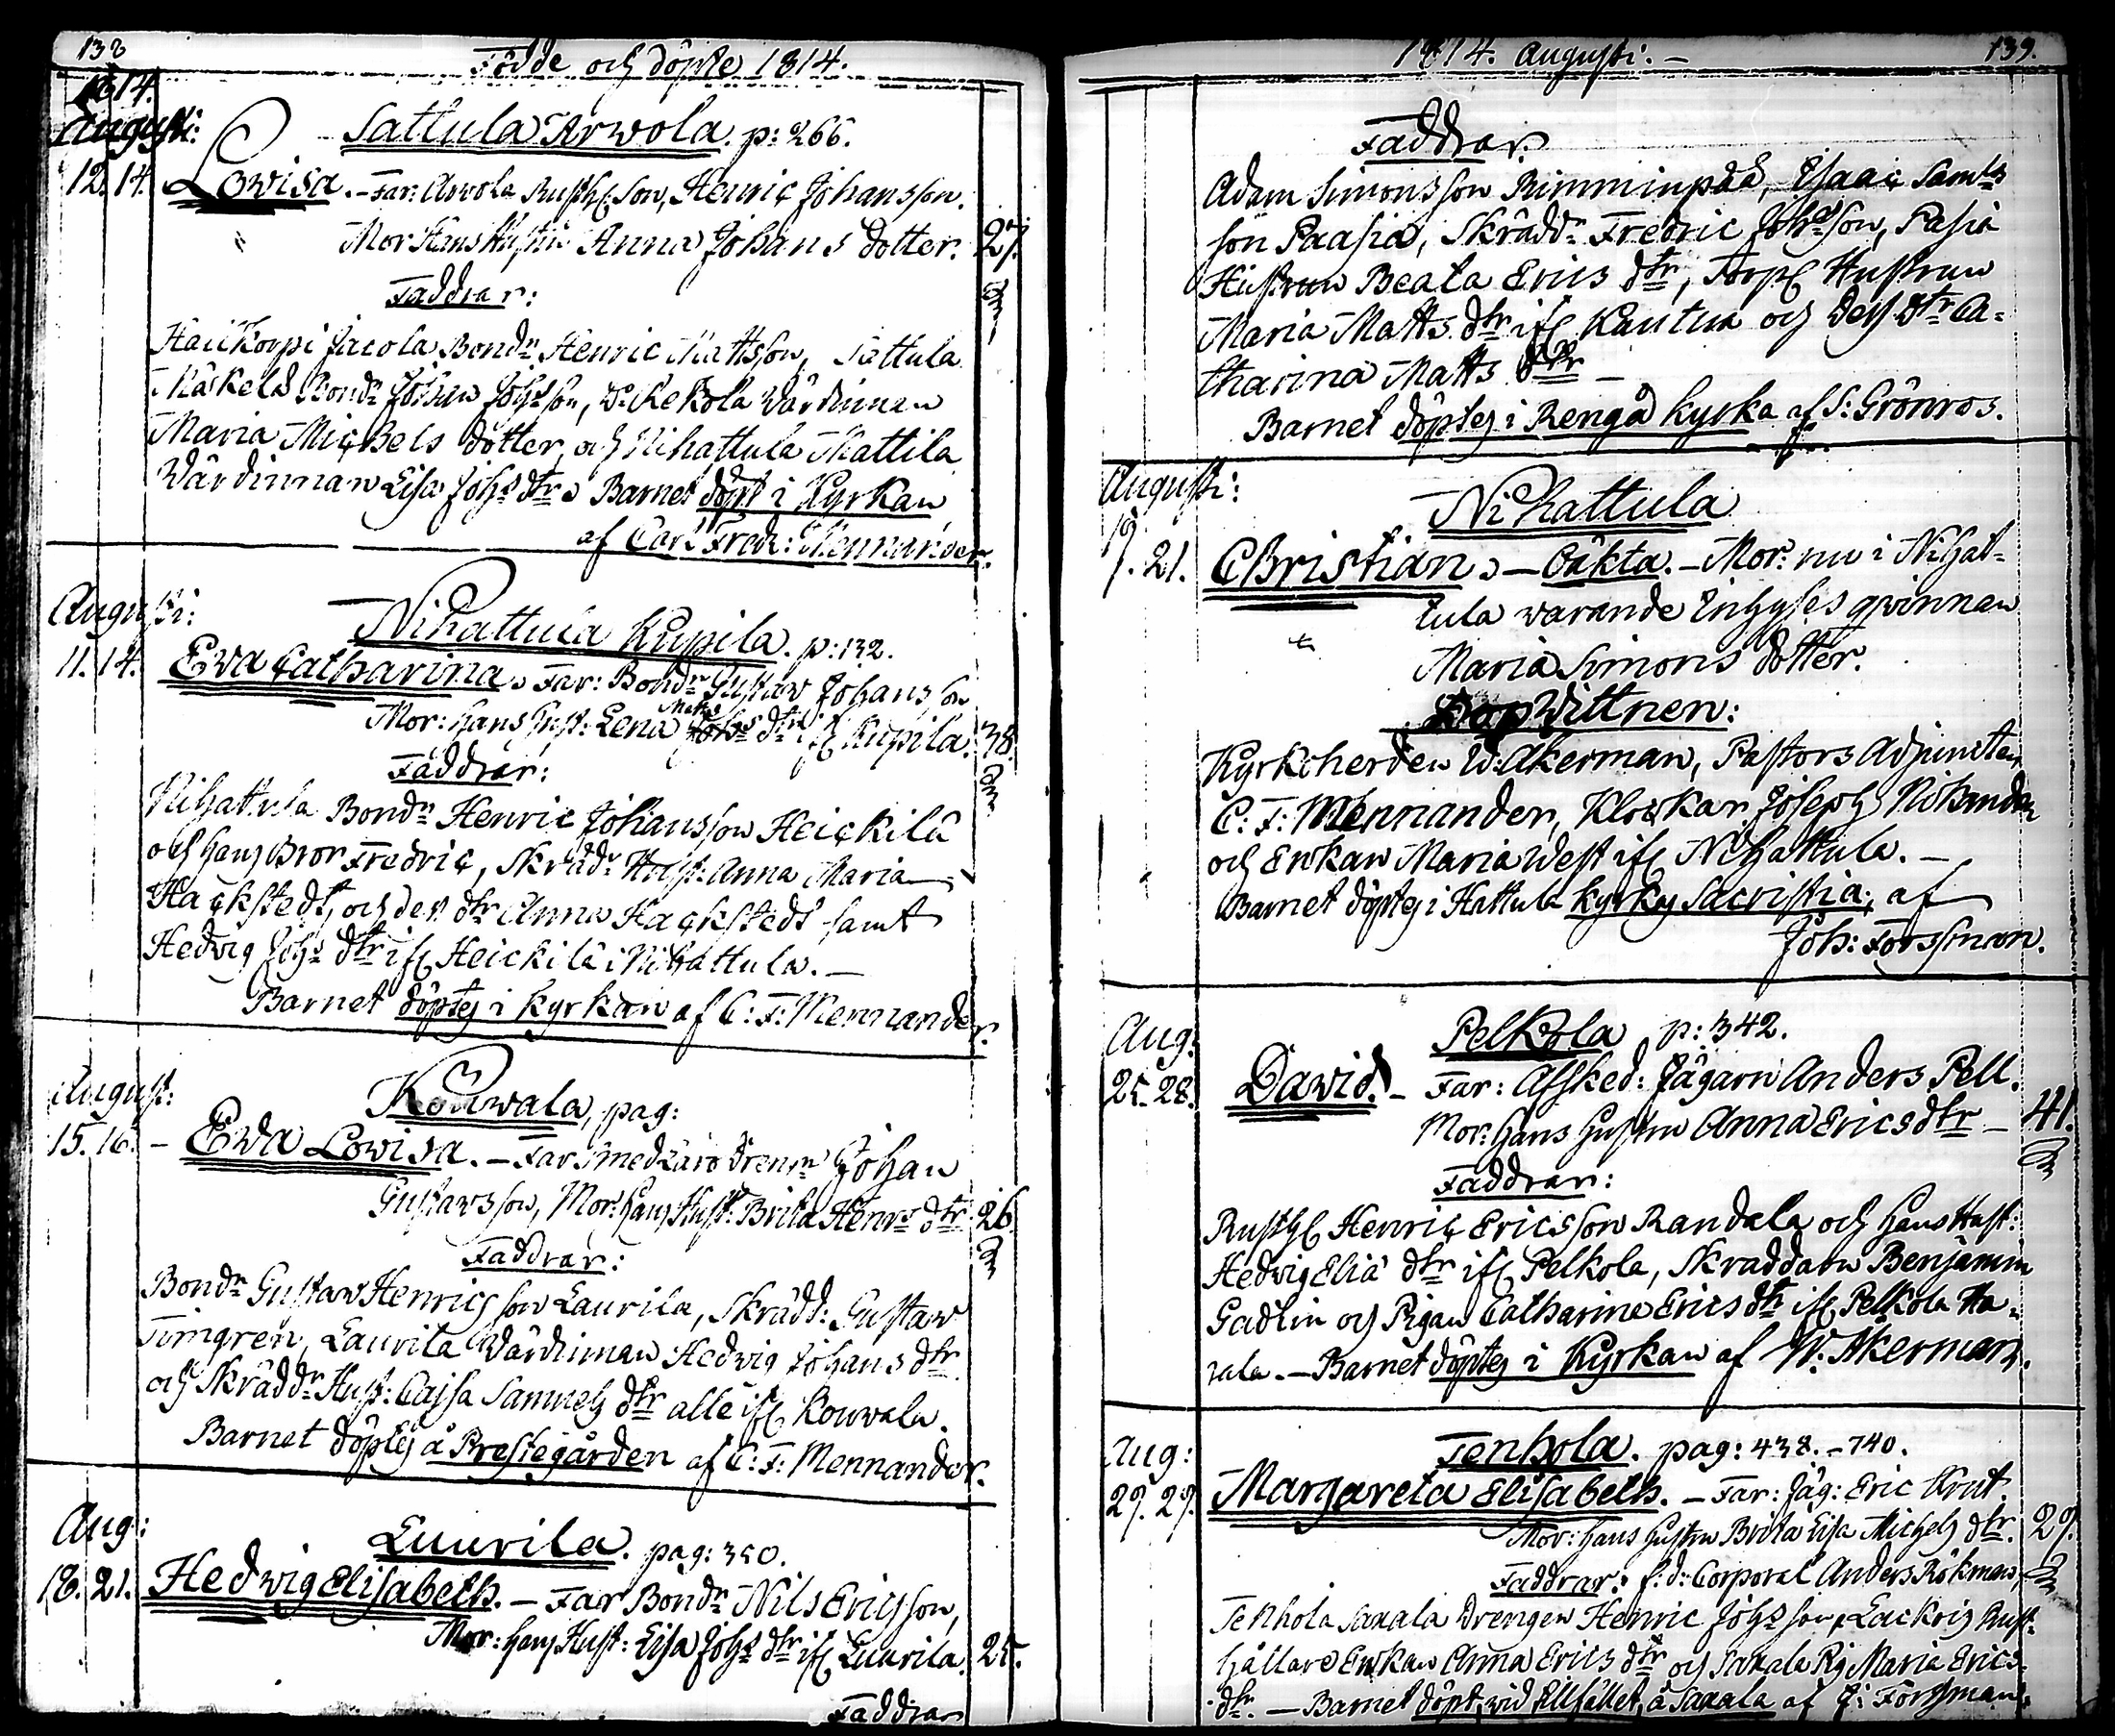 138
Födde och döpte 1814.
1814.
Augusti:
Sattula Arwola. p: 266.
12. 14. Lowisa. – Far: Arwola Rusth. Son, Henric Johansson.
Mor Hans Hustru Anna Johans dotter. 27.
Faddrar:
Jacola Bond:n Henric Mattsson, Sattula
Mäskelä Bond:n Johan Joh:sson, Kekola Värdinnan
Maria Michels dotter, och Nihattula Mattila
Värdinnan Lisa Johs dtr. Barnet döpt i Kyrkan
af Carl Fredr: Mennander.
Augusti:
Nihattula Kupila. p: 132.
11. 14. Eva Catharina. Far: Bond:n Gustav Johansson
Mor: hans hust: Lena Matts dtr ifr. Kupila. 38.
Faddrar:
Nihattula Bond:n Henric Johansson Heickilä
och hans Bror Fredric, Skrädd:r Hust: Anna Maria
Hackstedt, och des dtr Anna Hackstedt samt
Hedvig Johs dtr ifr. Heickilä i Nihattula. –
Barnet döptes i Kyrkan af C: F: Mennander.
August:
Kouwala, pag:
15. 16. – Eva Lovisa. – Far Smed Johan
Gustavsson, Mor: hans Hust: Brita Henrs dtr. 26.
Faddrar:
Bond:n Gustaw Henricsson Laurila, Skrädd: Gustaw
Timgren, Laurila Värdinnan Hedvig Johans dtr
och Skrädd:n Hust: Cajsa Samuels dtr alle ifr. Kouwala.
Barnet döptes å Prestegården af C: F: Mennander.
Aug:
Luurila. pag: 350.
18. 21. Hedvig Elisabeth. – Far Bond:n Nils Ericsson,
Mor: hans Hust: Lisa Johs dtr ifr. Luurila. 25.
Faddrar
1814. Augusti: –
139.
Faddrar.
Adam Simonsson Rimminpää, Isaac Sam:ls
son Paasia, Skrädd:r Fredric Joh:sson, Pasia
Hustrun Beata Erics dtr, Torp. Hustrun
Maria Matts dtr ifr. Kautua och des dtr Ca=
tharina Matts dtr –
Barnet döptes i Rengo Kyrka af S: Grönros.
Augusti:
Nihattula
21. Christian. – Oäkta. – Mor: nu i Nihat=
tula varande Inhyses qvinnan
Maria Simons dotter.
Dop Vittnen:
Kyrkoherden W: Åkerman, Pastors Adjuncten
C: F: Mennander, Klockar. Joseph Nihander
och Enkan Maria West ifr. Nihattula. –
Barnet döptes i Hattula Kyrkos Sacristia, af
Joh: Forssman.
Aug:
Pelkola p: 342.
25. 28. David. – Far: Afsked: Jägarn Anders Pell.
Mor: hans hustru Anna Ericsdtr – 41.
Faddrar:
Rusth. Henric Ericsson Randala och hans Hust:
Hedvig Eliä dtr ifr. Pelkola, Skräddarn Benjamin
Gadlin och Pigan Catharina Erics dtr ifr. Pelkola Ha=
rala. – Barnet döptes i Kyrkan af W. Åkerman.
Aug:
Tenhola. pag: 438. – 740.
27. 29. Margareta Elisabeth. – Far: Jäg: Eric Krut.
Mor: hans hustru Brita Lisa Michels dtr. 29.
Faddrar: f: d: Corporal Anders Rökman,
Tenhola Saxala Drengen Henric Johsson, Rust=
hållare Enkan Anna Erics dtr och Saxala Pig. Maria Erics
dtr. – Barnet döpt vid tillfället, å Saxala af J: Forssman.